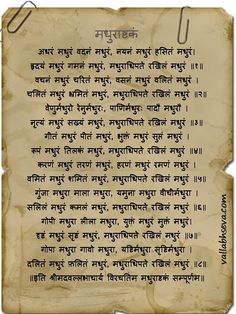 मधुराष्टकं
अधरं मधुरं वदनं मधुरं, नयनं मधुरं हसितं मधुरं।
हृदयं मधुरं गमनं मधुरं, मधुराधिपते रखिलं मधुरं ॥१॥
वचनं मधुरं चरितं मधुरं, वसनं मधुरं वलितं मधुरं ।
चलितं मधुरं भ्रमितं मधुरं, मधुराधिपते रखिलं मधुरं ॥२॥
वेणुर्मधुरो रेनुर्मधुरः, पाणिर्मधुरः पादौ मधुरौ ।
नृत्यं मधुरं सख्यं मधुरं, मधुराधिपते रखिलं मधुरं ॥३॥
गीतं मधुरं पीतं मधुरं, भुक्तं मधुरं सुप्तं मधुरं ।
रूपं मधुरं तिलकं मधुरं, मधुराधिपते रखिलं मधुरं ॥४॥
करणं मधुरं तरणं मधुरं, हरणं मधुरं रमणं मधुरं ।
वमितं मधुरं शमितं मधुरं, मधुराधिपते रखिलं मधुरं ॥५॥
गुंजा मधुरा माला मधुरा, यमुना मधुरा वीचीर्मधुरा ।
सलिलं मधुरं कमलं मधुरं, मधुराधिपते रखिलं मधुरं ॥६॥
गोपी मधुरा लीला मधुरा, युक्तं मधुरं मुक्तं मधुरं।
दृष्टं मधुरं सृष्टं मधुरं, मधुराधिपते रखिलं मधुरं ॥७॥
गोपा मधुरा गावो मधुरा, यष्टिर्मधुरा सृष्टिर्मधुरा ।
दलितं मधुरं फलितं मधुरं, मधुराधिपते रखिलं मधुरं ॥८॥
॥इति श्रीमदवल्लभाचार्य विरचितम मधुराष्टकं सम्पूर्णम॥
vallabhseva.com